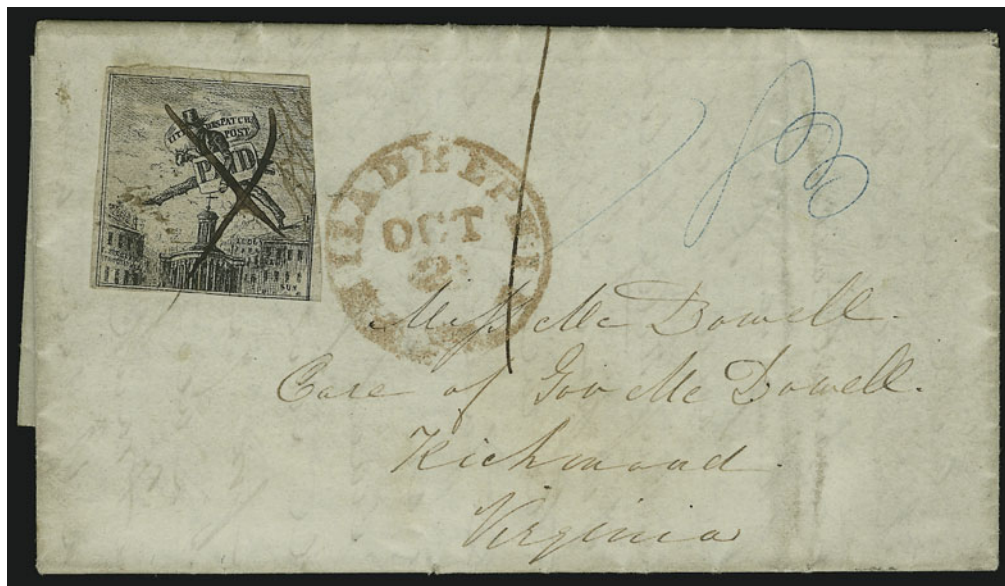 DESPATCH
POST
PAID
PHILADELPHIA
OCT
2
Miss Mc Dowell.
Care of Gov Mc Dowell.
Richmond.
Virginia